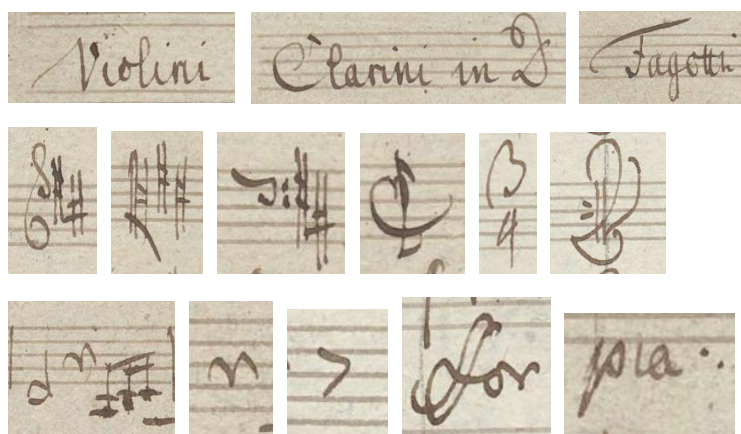 Violini Clarini in D Fagotti
3
4
for pia.